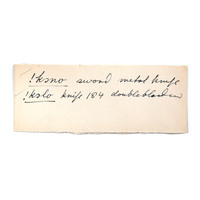 !ksno sword metal knife
!kslo knife 184 doublebladed